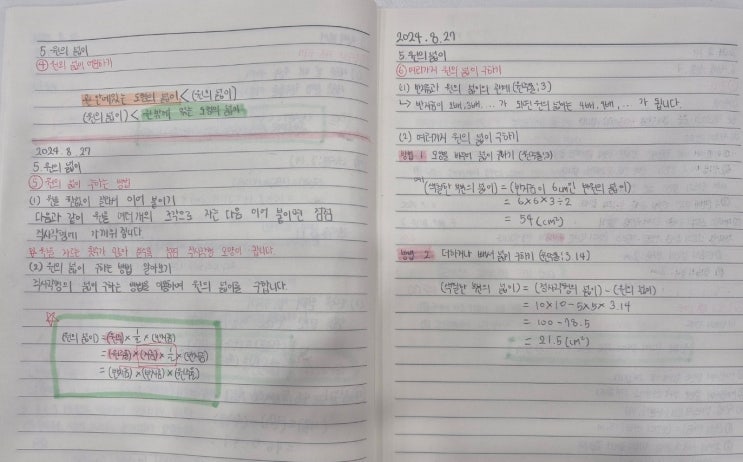 5. 원의 넓이
④ 원의 넓이 어림하기
(원 안에 있는 도형의 넓이) < (원의 넓이)
(원의 넓이) < (원 밖에 있는 도형의 넓이)
2024. 8. 27
5. 원의 넓이
⑤ 원의 넓이 구하는 방법
(1) 원을 잘라서 이어 붙이기
다음과 같이 원을 여러 개의 조각으로 자른 다음 이어 붙이면 점점
직사각형에 가까워집니다.
점점 직사각형 모양이 됩니다.
(2) 원의 넓이 구하는 방법 알아보기
직사각형의 넓이 구하는 방법을 이용하여 원의 넓이를 구합니다.
(원의 넓이) = (원주) × 1/2 × (반지름)
= (원주율) × (지름) × 1/2 × (반지름)
= (반지름) × (반지름) × (원주율)
2024. 8. 27
5. 원의 넓이
⑥ 여러가지 원의 넓이 구하기
(1) 반지름과 원의 넓이의 관계 (원주율: 3)
↳ 반지름이 2배, 3배, ... 가 되면 원의 넓이는 4배, 9배, ... 가 됩니다.
(2) 여러가지 원의 넓이 구하기
방법 1 모양을 바꾸어 넓이 구하기 (원주율: 3)
(색칠한 부분의 넓이) = (반지름이 6cm인 반원의 넓이)
= 6×6×3÷2
= 54 (cm²)
방법 2. 더하거나 빼서 넓이 구하기 (원주율: 3.14)
(색칠한 부분의 넓이) = (정사각형의 넓이) - (원의 넓이)
= 10×10-5×5×3.14
= 100-78.5
= 21.5 (cm²)